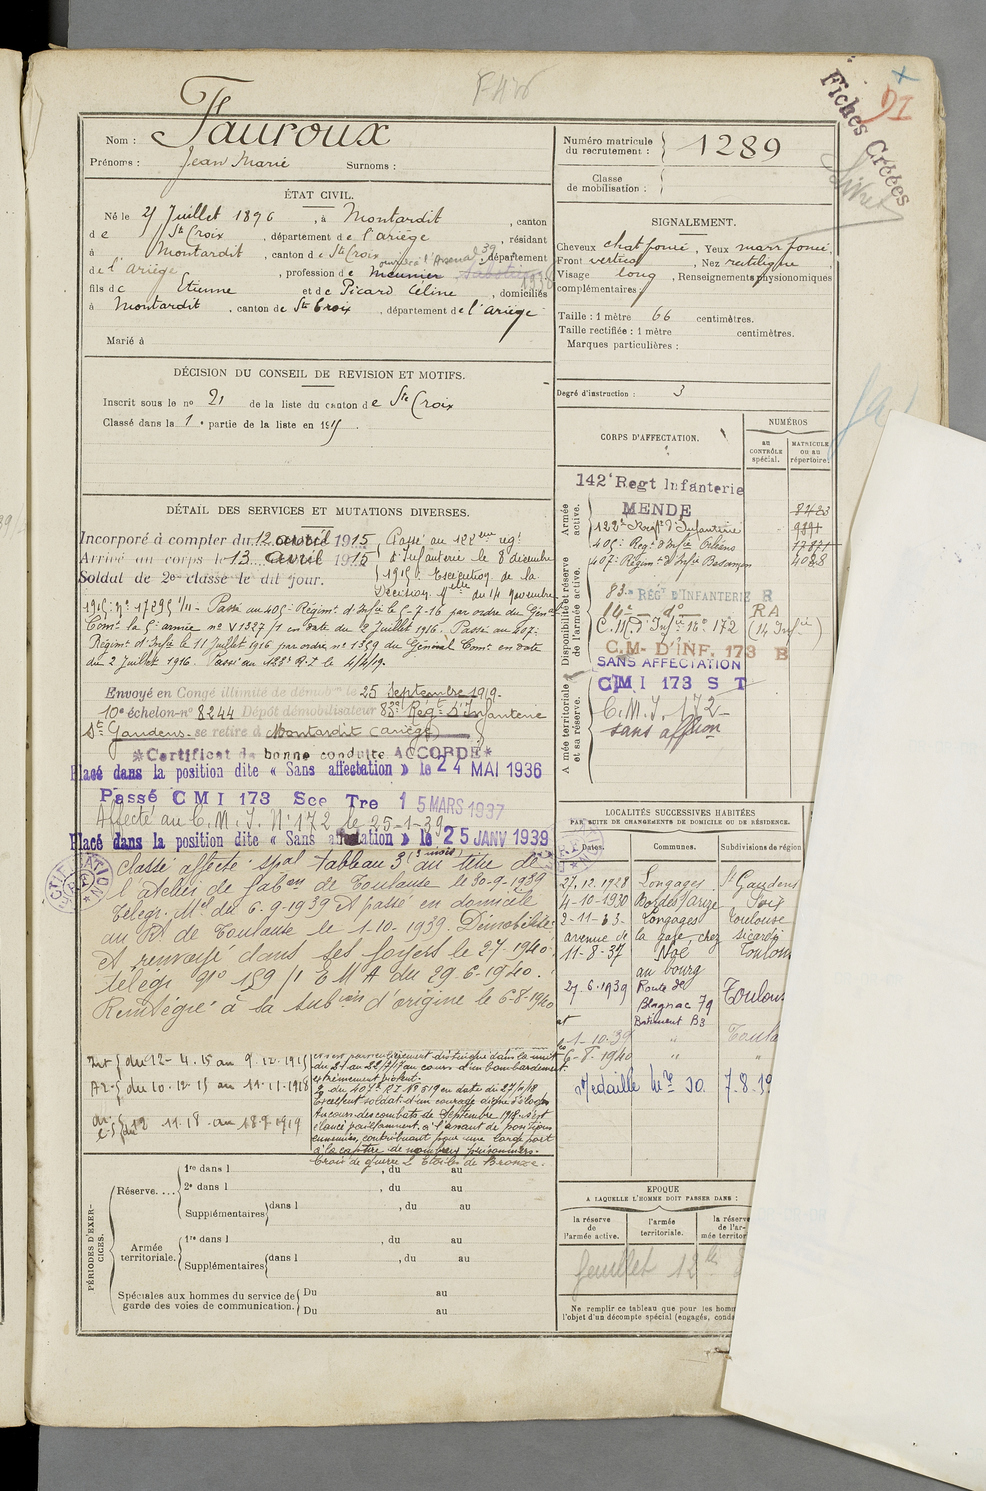 Fiches Créées
Nom : Fauroux
Prénoms : Jean Marie Surnoms :
Numéro matricule du recrutement : 1289
Classe de mobilisation :
ÉTAT CIVIL.
Né le 21 Juillet 1896, à Montardit, canton
de Ste Croix, département de l'ariège, résidant
à Montardit, canton de Ste Croix, département
de l'Ariège, profession de meunier
fils de Etienne et de Picard Céline, domiciliés
à Montardit, canton de Ste Croix, département de l'ariège
Marié à
SIGNALEMENT.
Cheveux chat foncé, Yeux marr foncé,
Front vertical, Nez rectiligne,
Visage long, Renseignements physionomiques
complémentaires :
Taille : 1 mètre 66 centimètres.
Taille rectifiée : 1 mètre centimètres.
Marques particulières :
Degré d'instruction : 3
DÉCISION DU CONSEIL DE REVISION ET MOTIFS.
Inscrit sous le no 21 de la liste du canton de Ste Croix
Classé dans la 1e partie de la liste en 1915
CORPS D'AFFECTATION.
NUMÉROS
au CONTRÔLE spécial.
MATRICULE ou au répertoire.
Armée active.
142e Regt Infanterie
MENDE
122e Regt d'Infanterie
405e Regt d'Infie Orléans
407e Régimt d'Infie Besançon 4028
Disponibilité et réserve de l'armée active.
83e REGt D'INFANTERIE R
14e do RA
C.M. d'Infie 16e 172 (14 Infie)
C.M- D'INF. 173 B
SANS AFFECTATION
CMI 173 S T
Armée territoriale et sa réserve.
C.M.I. 172
sans affon
DÉTAIL DES SERVICES ET MUTATIONS DIVERSES.
Incorporé à compter du 12 avril 1915
Arrivé au corps le 13 avril 1915
Soldat de 2e classe le dit jour.
Passé au 122eme rég.
d'Infanterie le 8 décembre
1915. Exécution de la
Décision Melle du 14 Novembre
1915 no 17295 1/11- Passé au 405e Régimt d'Infie le 5-7-16 par ordre du Génal
Comt la 5e armée no V1327/1 en date du 2 Juillet 1916. Passé au 407e
Régimt d'Infie le 11 Juillet 1916 par ordre no 1359 du Général Comt en date
du 2 Juillet 1916. Passé au 122e R.I. le 4/4/19.
Envoyé en Congé illimité de démobon le 25 Septembre 1919.
10e échelon-no 8244 Dépôt démobilisateur 83e Régt D'Infanterie
St Gaudens-se retire à Montardit (Ariège)
*Certificat de bonne conduite ACCORDÉ*
Placé dans la position dite « Sans affectation » le 24 MAI 1936
Passé CMI 173 Sce Tre 15 MARS 1937
Affecté au C.M.I. No 172 le 25-1-39
Placé dans la position dite « Sans affectation » le 25 JANV 1939
Classé affecté spal Tableau 3 (3 mois) au titre de
l'atelier de fabon de Toulouse le 30-9-1939
Télégr. Mel du 6-9-1939 Et passé en domicile
au Rt de Toulouse le 1-10-1939. Démobilisé
et renvoyé dans ses foyers le 27-1940
télégr no 159/1 E M A du 29-6-1940.
Réintégré à la subion d'origine le 6-8-1940
Int { du 12-4.15 au 9.12.1915
Az { du 10.12.15 au 11.11.1918
du 12.11.18 au 18.9.1919
s'est particulièrement distingué dans la nuit
du 21 au 22/7/17 au cours d'un bombardement
extrêmement violent.
du 407e R.I No 519 en date du 27/11/18
Excellent soldat d'un courage digne d'éloges
Au cours des combats de Septembre 1918. S'est
élancé vaillamment à l'assaut de positions
ennemies, contribuant pour une large part
à la capture de nombreux prisonniers.
Croix de guerre 2 Etoiles de Bronze.
LOCALITÉS SUCCESSIVES HABITÉES
PAR SUITE DE CHANGEMENTS DE DOMICILE OU DE RÉSIDENCE.
Dates. Communes. Subdivisions de région
27.12.1928 Longages St Gaudens
4-10-1930 Bordes s/Arize Foix
2-11-33 Longages Toulouse
avenue de la gare, chez Sicardi
11-8-37 Noé
au bourg
27.6.1939 Route de
Blagnac 79
Batiment B3
1-10-39 "
6-8-1940 " "
Médaille Mre JO. 7-8-19
PÉRIODES D'EXERCICES.
Réserve....
1re dans l , du au
2e dans l , du au
Supplémentaires dans l , du au
Armée territoriale.
1re dans l , du au
Supplémentaires dans l , du au
Spéciales aux hommes du service de garde des voies de communication.
Du au
Du au
EPOQUE
A LAQUELLE L'HOMME DOIT PASSER DANS :
la réserve de l'armée active.
l'armée territoriale.
la réserve de l'ar- mée territor
feuillet 12
Ne remplir ce tableau que pour les hom
l'objet d'un décompte spécial (engagés, cond